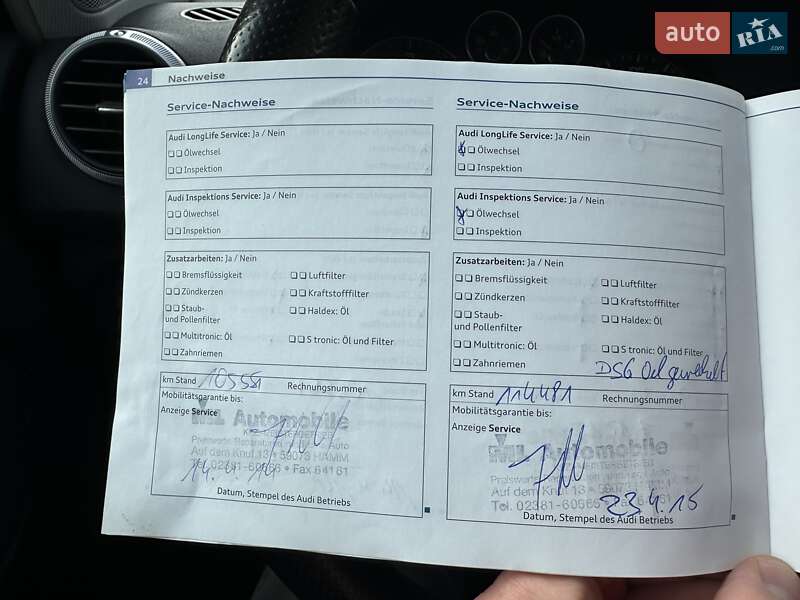 auto RIA .com
24 Nachweise
Service-Nachweise
Audi LongLife Service: Ja / Nein
Ölwechsel
Inspektion
Audi Inspektions Service: Ja / Nein
Ölwechsel
Inspektion
Zusatzarbeiten: Ja / Nein
Bremsflüssigkeit
Luftfilter
Zündkerzen
Kraftstofffilter
Staub-
und Pollenfilter
Haldex: Öl
Multitronic: Öl
S tronic: Öl und Filter
Zahnriemen
km Stand 105551
Rechnungsnummer
Mobilitätsgarantie bis:
Anzeige Service
ML Automobile
Auto
Auf dem Knuf 13 • 59073 HAMM
Fax 64161
Datum, Stempel des Audi Betriebs
Service-Nachweise
Audi LongLife Service: Ja / Nein
Ölwechsel
Inspektion
Audi Inspektions Service: Ja / Nein
Ölwechsel
Inspektion
Zusatzarbeiten: Ja / Nein
Bremsflüssigkeit
Luftfilter
Zündkerzen
Kraftstofffilter
Staub-
und Pollenfilter
Haldex: Öl
Multitronic: Öl
S tronic: Öl und Filter
Zahnriemen
DSG Oel gewechselt
km Stand 114481
Rechnungsnummer
Mobilitätsgarantie bis:
Anzeige Service
ML Automobile
Auf dem Knuf 13
Tel. 02381-60566
23.4.15
Datum, Stempel des Audi Betriebs